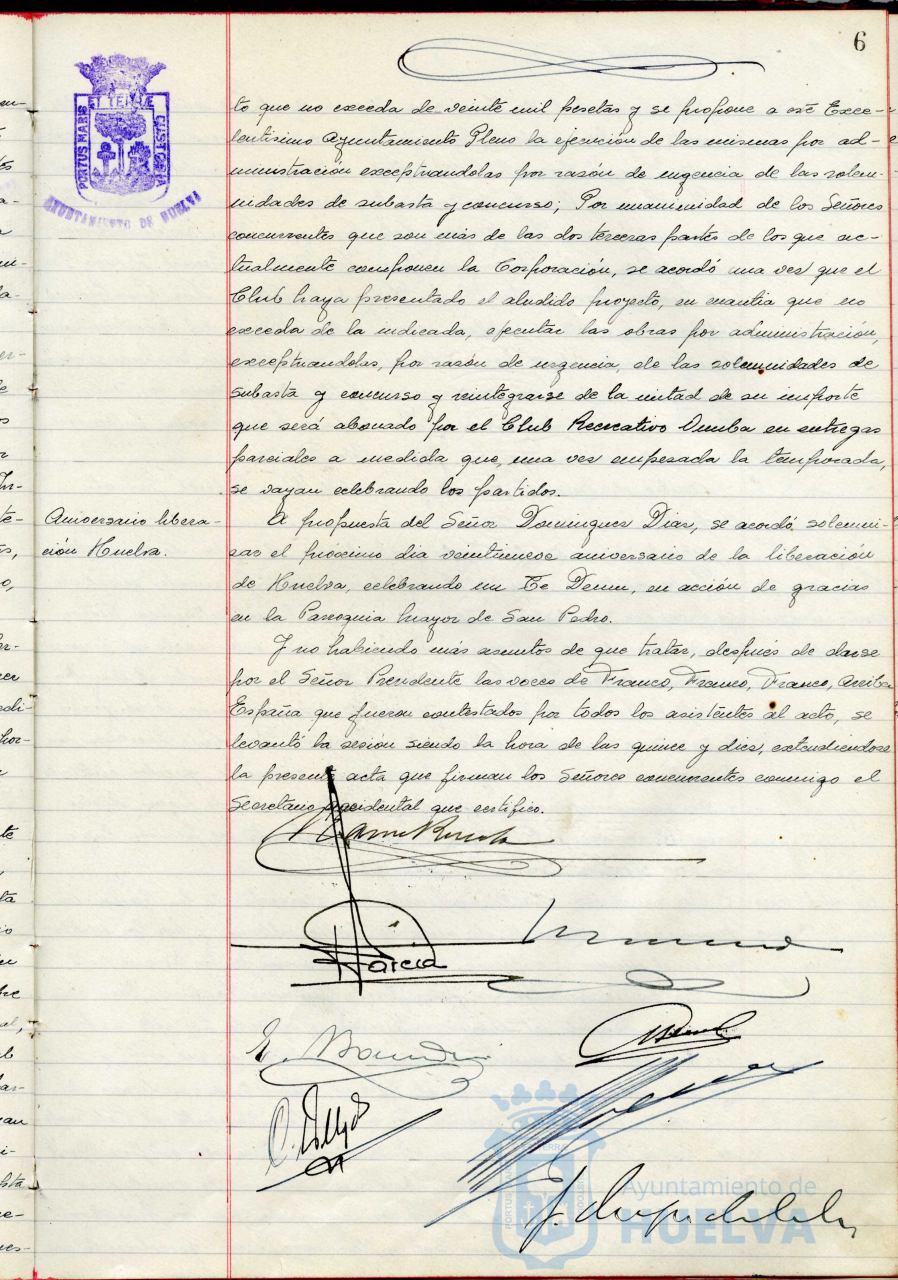 6
PORTUS MARIS ET TERRAE CUSTODIA
AYUNTAMIENTO DE HUELVA
to que no exceda de veinte mil pesetas y se propone a este Exce-
lentisimo Ayuntamiento Pleno la ejecución de las mismas por ad-
ministración exceptuandolas por razón de urgencia de las solem-
nidades de subasta y concurso; Por unanimidad de los Señores
concurrentes que son más de las dos terceras partes de los que ac-
tualmente componen la Corporación, se acordó una vez que el
Club haya presentado el aludido proyecto, en cuantia que no
exceda de la indicada, ejecutar las obras por administración,
exceptuandolas, por razón de urgencia, de las solemnidades de
subasta y concurso y reintegrarse de la mitad de su importe
que será abonado por el Club Recreativo Onuba en entregas
parciales a medida que, una vez empezada la temporada,
se vayan celebrando los partidos.
Aniversario libera-
ción Huelva.
A propuesta del Señor Dominguez Diaz, se acordó solemni-
zar el próximo dia veintinueve aniversario de la liberación
de Huelva, celebrando un Te Deum, en acción de gracias
en la Parroquia Mayor de San Pedro.
Y no habiendo más asuntos de que tratar, después de darse
por el Señor Presidente las voces de Franco, Franco, Franco, Arriba
España que fueron contestados por todos los asistentes al acto, se
levantó la sesión siendo la hora de las quince y diez, extendiendose
la presente acta que firman los Señores concurrentes conmigo el
Secretario accidental que certifico.
Garcia
E.
Ayuntamiento de
HUELVA